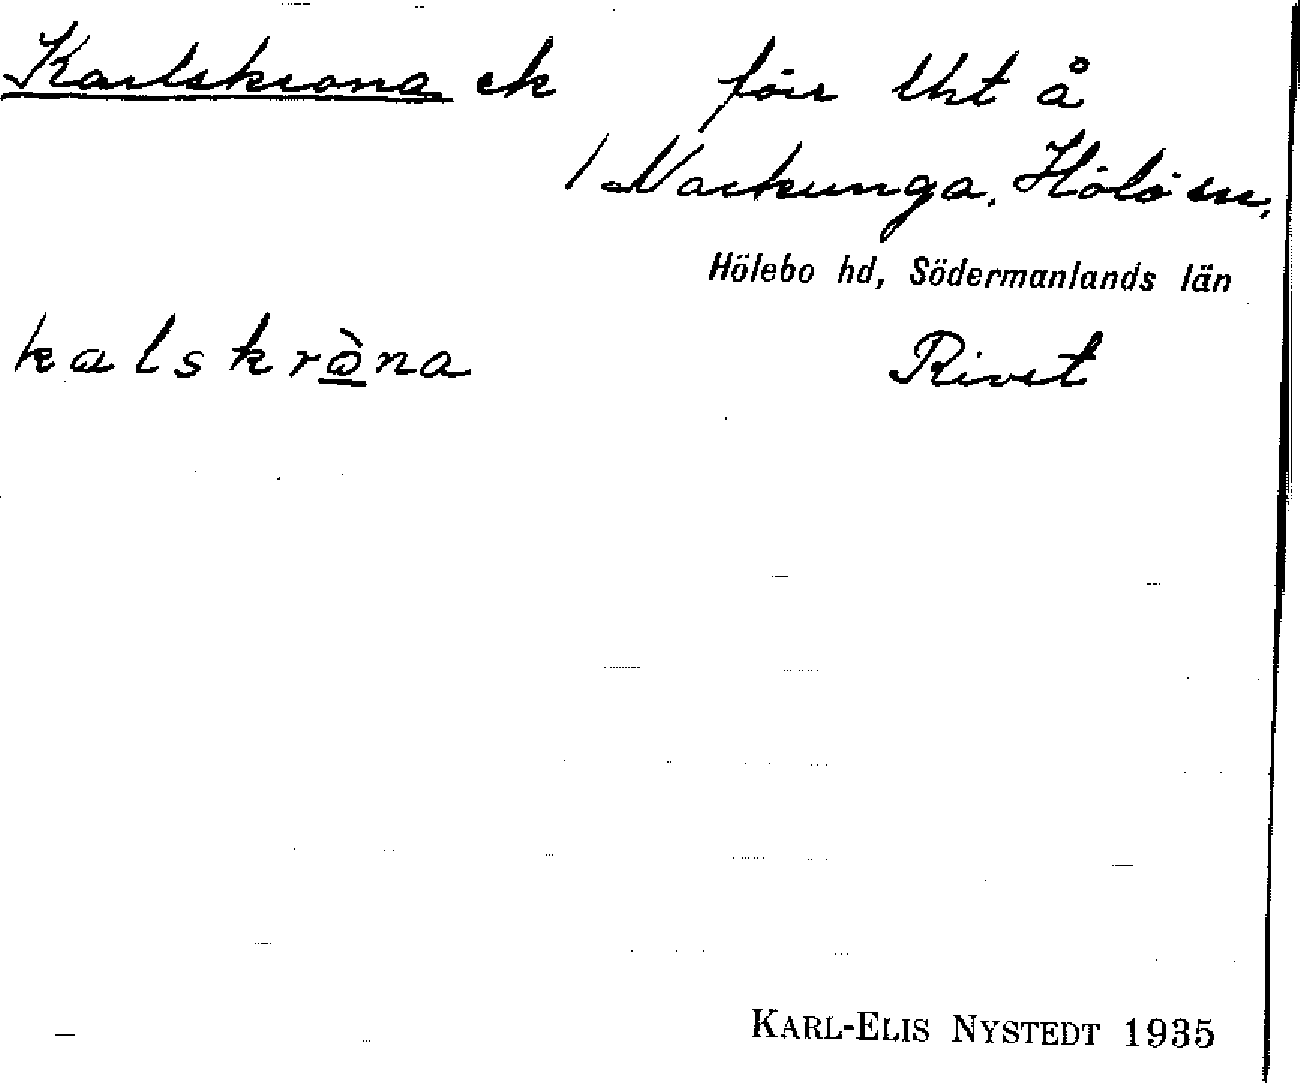 Karlskrona ek förr Uht å
1 Nackunga, Hölö sn,
Hölebo hd, Södermanlands län
kalskròna Rivet
KARL-ELIS NYSTEDT 1935